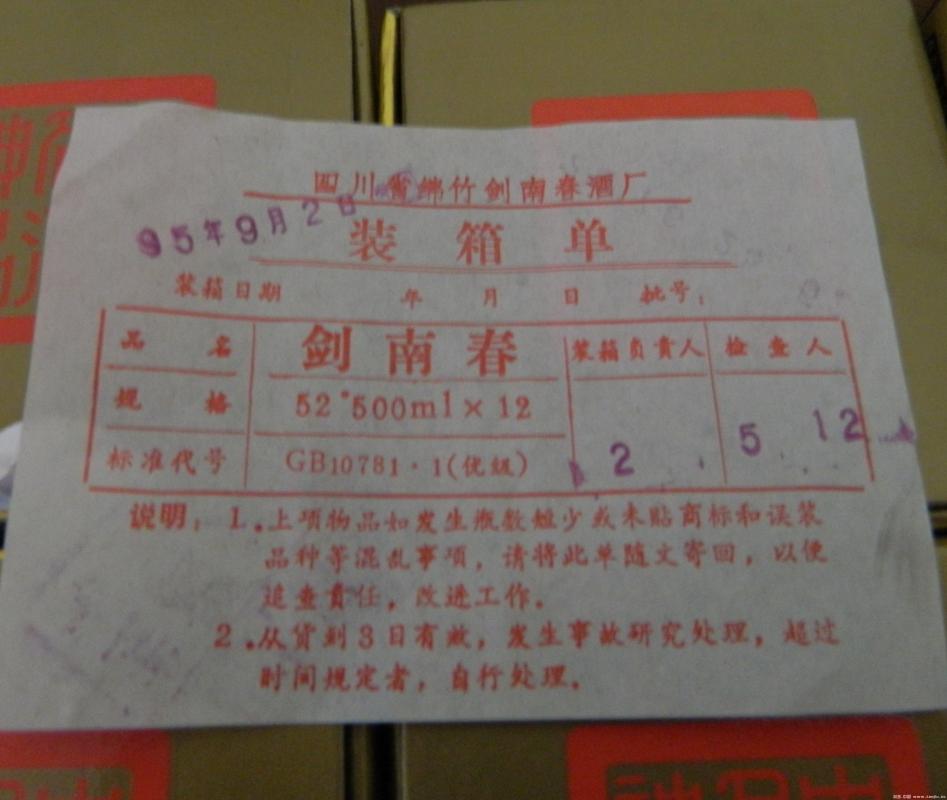 四川省绵竹剑南春酒厂
95年9月2日
装箱单
装箱日期 年 月 日 批号:
品名 剑南春 装箱负责人 检查人
规格 52°500ml×12
标准代号 GB10781·1(优级) 2 5 12
说明:1.上项物品如发生瓶数短少或未贴商标和误装
品种等混乱事项,请将此单随文寄回,以便
追查责任,改进工作。
2.从货到3日有效,发生事故研究处理,超过
时间规定者,自行处理。